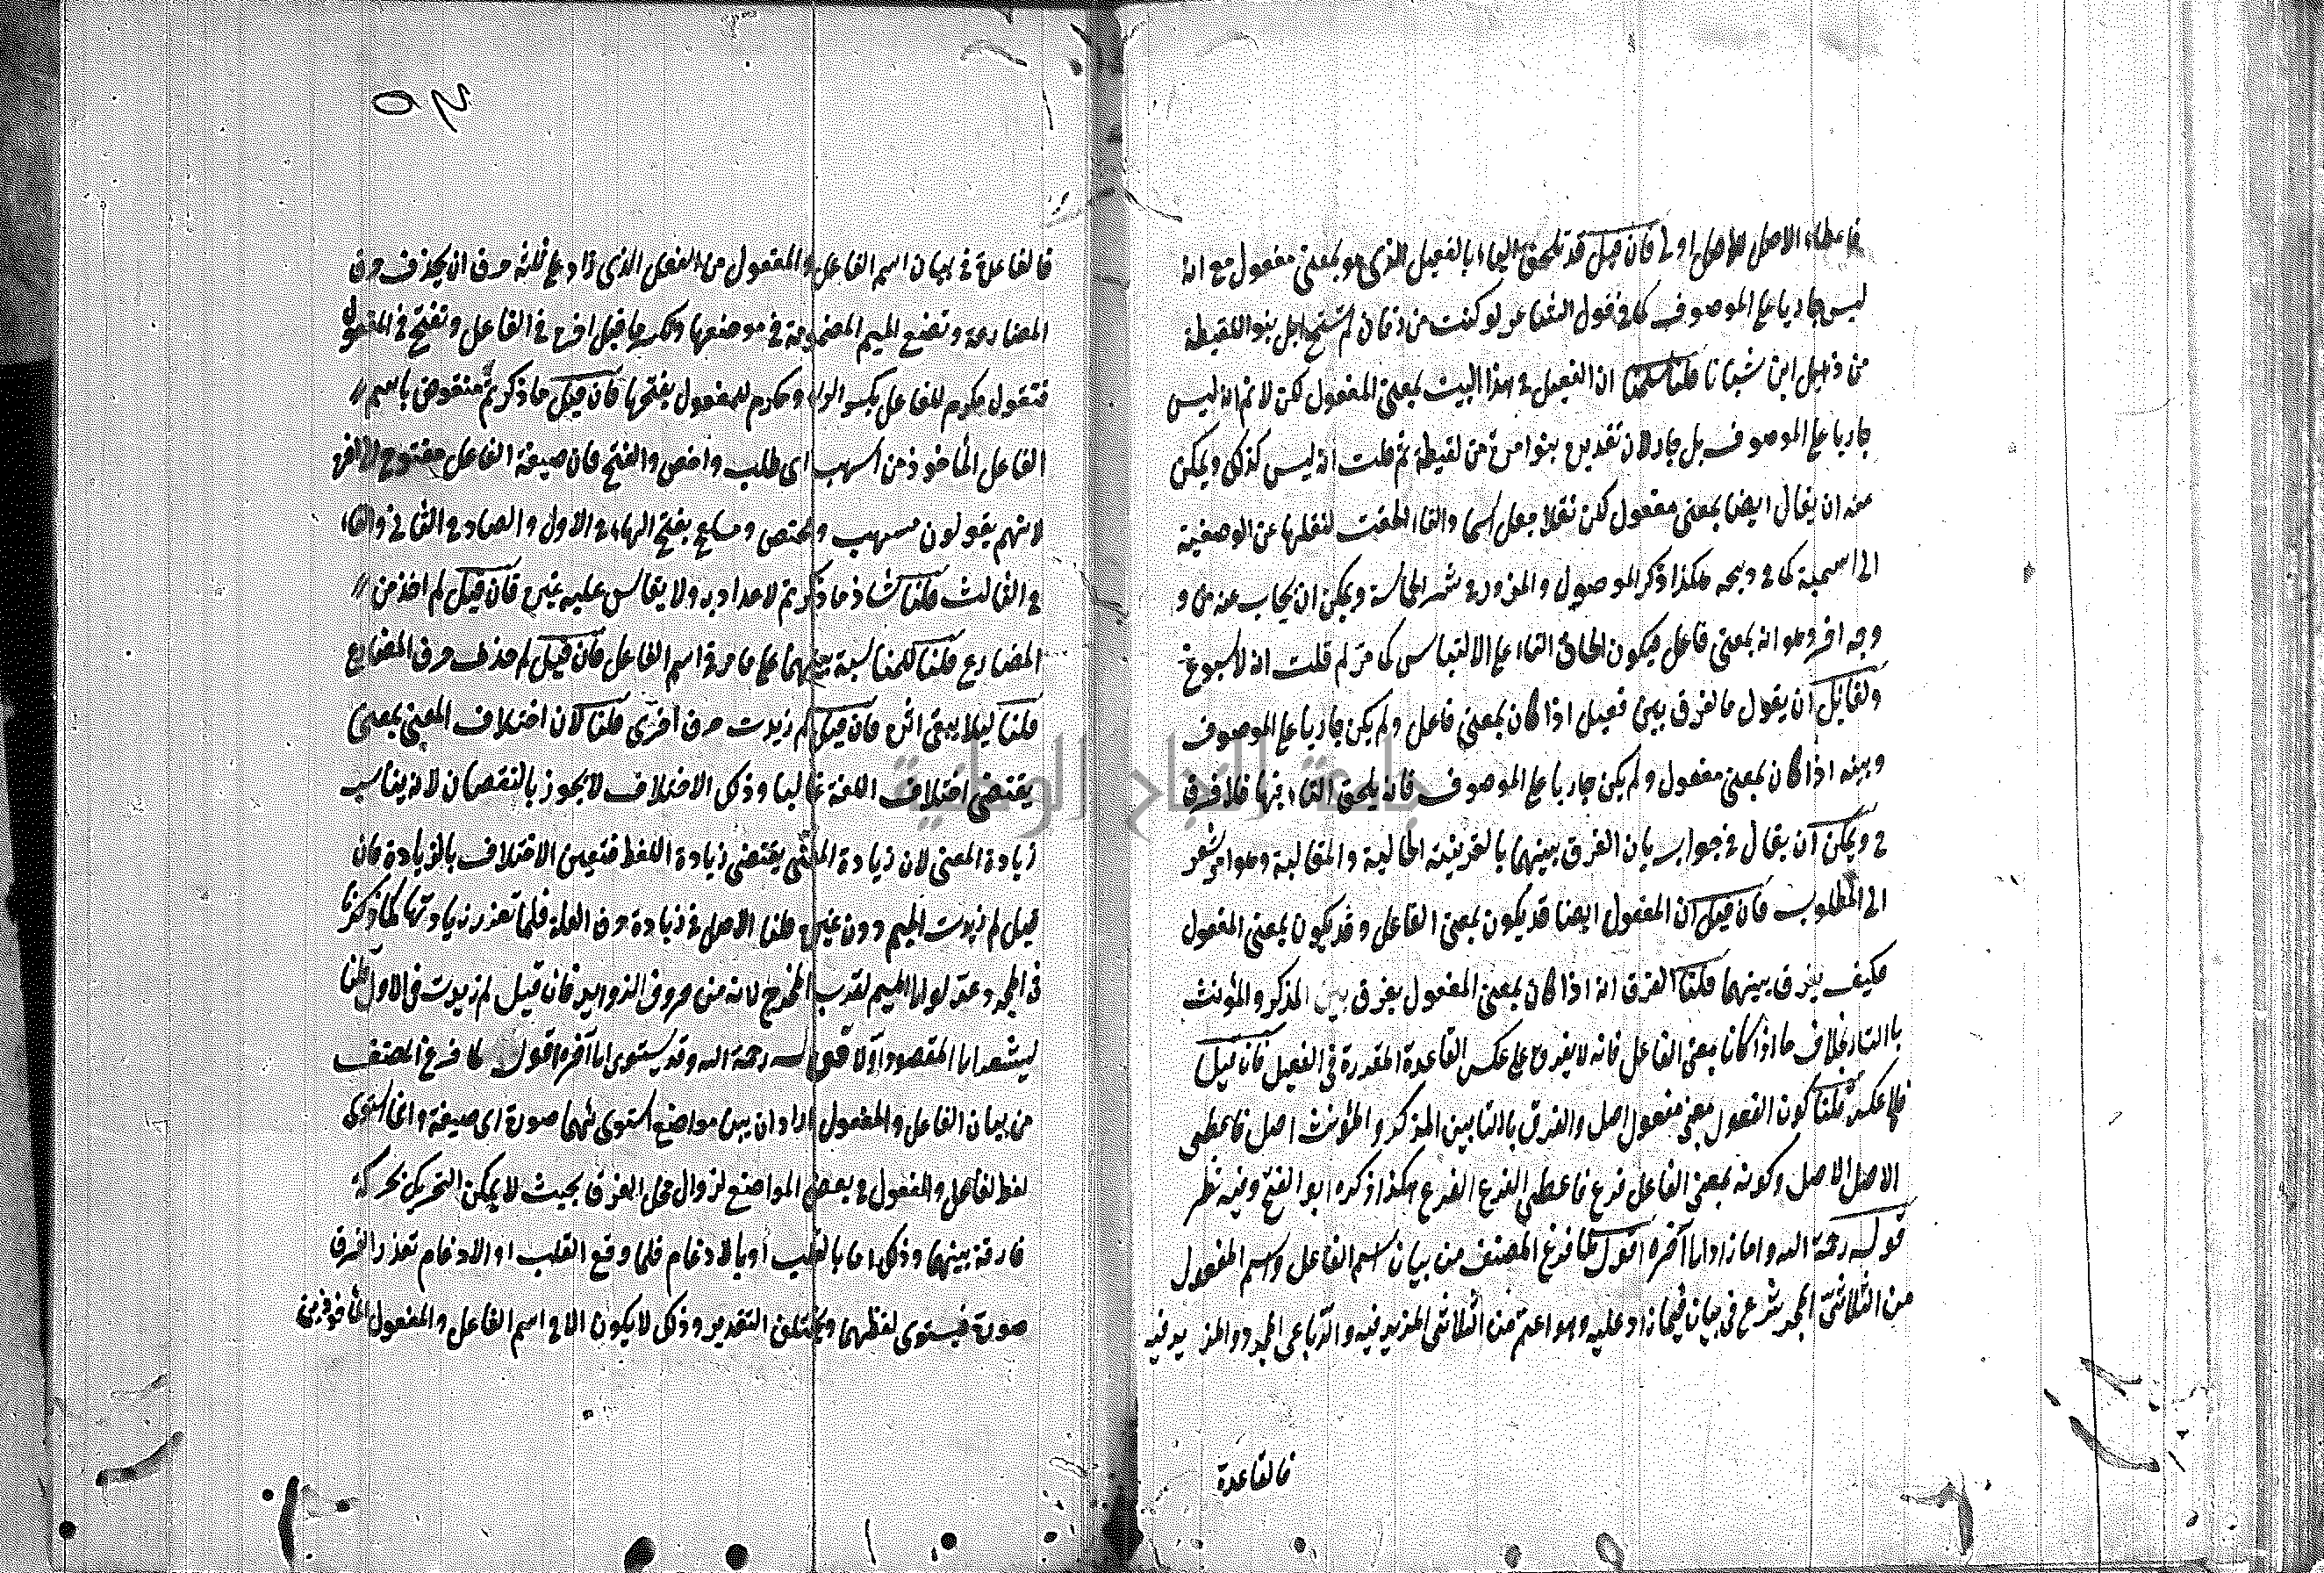 فاعطاء الاصل للاصل اولى فان قيل قد تلحق التاء بالفعيل الذى هو بمعنى مفعول مع انه
ليس جاريا على الموصوف كما فى قول الشاعر لو كنت من زمان لم تستبح ابلى بنو اللقيطة
من ذهل ابن شيبانا قلنا سلمنا ان الفعيل فى هذا البيت بمعنى المفعول لكن لا نم انه ليس
جاريا على الموصوف بل جار لان تقديره بنو امرءة من لقيطة ثم قلت انه ليس كذلك ويمكن
عنه ان يقال ايضا بمعنى مفعول لكن نقلا جعل اسما والتاء الحقت لنقلها عن الوصفية
الى اسمية كما فى ذبيحه هكذا ذكر الموصول و شهر الحالسة ويمكن ان يجاب عنه من و
وجه اخر وهو انه بمعنى فاعل فيكون الحاق التاء على الالتباس كما مر لم قلت انه لا يسوغ
ولقائل ان يقول ما الفرق بين فعيل اذا كان بمعنى فاعل ولم يكن جاريا على الموصوف
وبينه اذا كان بمعنى مفعول ولم يكن جاريا على الموصوف فانه يلحق التاء فيها فلا فرق
ح ويمكن ان يقال فى جوابه بان الفرق بينهما بالقرينة الحالية والمقالية وهو امر يشعر
الى المطلوب فان قيل ان المفعول ايضا قد يكون بمعنى الفاعل وقد يكون بمعنى المفعول
فكيف يفرق بينهما قلنا الفرق انه اذا كان بمعنى المفعول يفرق بين المذكر والمؤنث
بالتاء بخلاف ما اذا كانا بمعنى الفاعل فانه لا يفرق على عكس القاعدة المقدرة فى الفعيل فان قيل
فلم عكس قلنا كون الفعول بمعنى مفعول اصل والفرق بالتا بين المذكر والمؤنث اصل فاعطى
الاصل الاصل وكونه بمعنى الفاعل فرع فاعطى الفرع الفرع هكذا ذكره ابو الفتح وفيه نظر
قوله رحمة الله واما زاد الى آخره اقول لما فرغ المصنف من بيان اسم الفاعل واسم المفعول
من الثلاثى المجرد شرع فى بيان فيما زاد عليه وهو اعم من الثلاثى المزيد فيه والرباعى المجرد والمز يد فيه
فالقاعدة
٤٥
فالقاعدة فى بيان اسم الفاعل والمفعول من الفعل الذى زاد على ثلثة حرف ان يحذف حرف
المضارعة وتضع الميم المضمومة فى موضعها وتكسر ما قبل اخره فى الفاعل وتفتح فى المفعول
فتقول مكرم للفاعل بكسر الراء ومكرم للمفعول بفتحها فان قيل ما ذكرتم منقوض باسم
الفاعل المأخوذ من اسهب اى طلب واخص والفتح فان صيغة الفاعل مفتوح الاخر
لانهم يقولون مسهب ومختص ومسلح بفتح الهاء فى الاول والصاد فى الثانى و
فى الثالث قلنا شاذ ما ذكرتم لا عداد به ولا يقاس عليه غيره فان قيل لم اخذ من
المضارع قلنا كلمنا لسبة بينهما على ما مر فى اسم الفاعل فان قيل لم حذف حرف المضارع
قلنا ليلا يبقى اثره فان قيل لم زيدت حرف اخرى قلنا لان اختلاف المعنى بمعنى
يقتضى اختلاف اللغة غالبا وذلك الاختلاف لا يجوز بالنقصان لانه يناسب
زيادة المعنى لان زيادة المعنى يقتضى زيادة اللفظ فتعين الاختلاف بالزيادة فان
قيل لم زيدت الميم دون غيره قلنا الاصل فى زيادة حرف العلة فلما تعذر زيادتها كما ذكرنا
فى المجرد عدلوا لا الميم لقرب المخرج لانه من حروف الزوايد فان قيل لم زيدت فى الاول قلنا
ليشعر اما المقصود اولا قوله رحمة الله وقد يستوى اما آخره اقول لما فرغ المصنف
من بيان الفاعل والمفعول اراد ان يبين مواضع استوى فيهما صورة اى صيغة وانما استوى
لفظ الفاعل والمفعول فى بعض المواضع لزوال محل الفرق بحيث لا يمكن التحريك بحركة
فارقة بينهما وذلك اما بالقلب او بالادغام فلما وقع القلب او الادغام تعذر الفرق
صورة فيستوى لفظهما ويختلف التقدير وذلك لا يكون الا فى اسم الفاعل والمفعول المأخوذ من
جامعة النجاح الوطنية